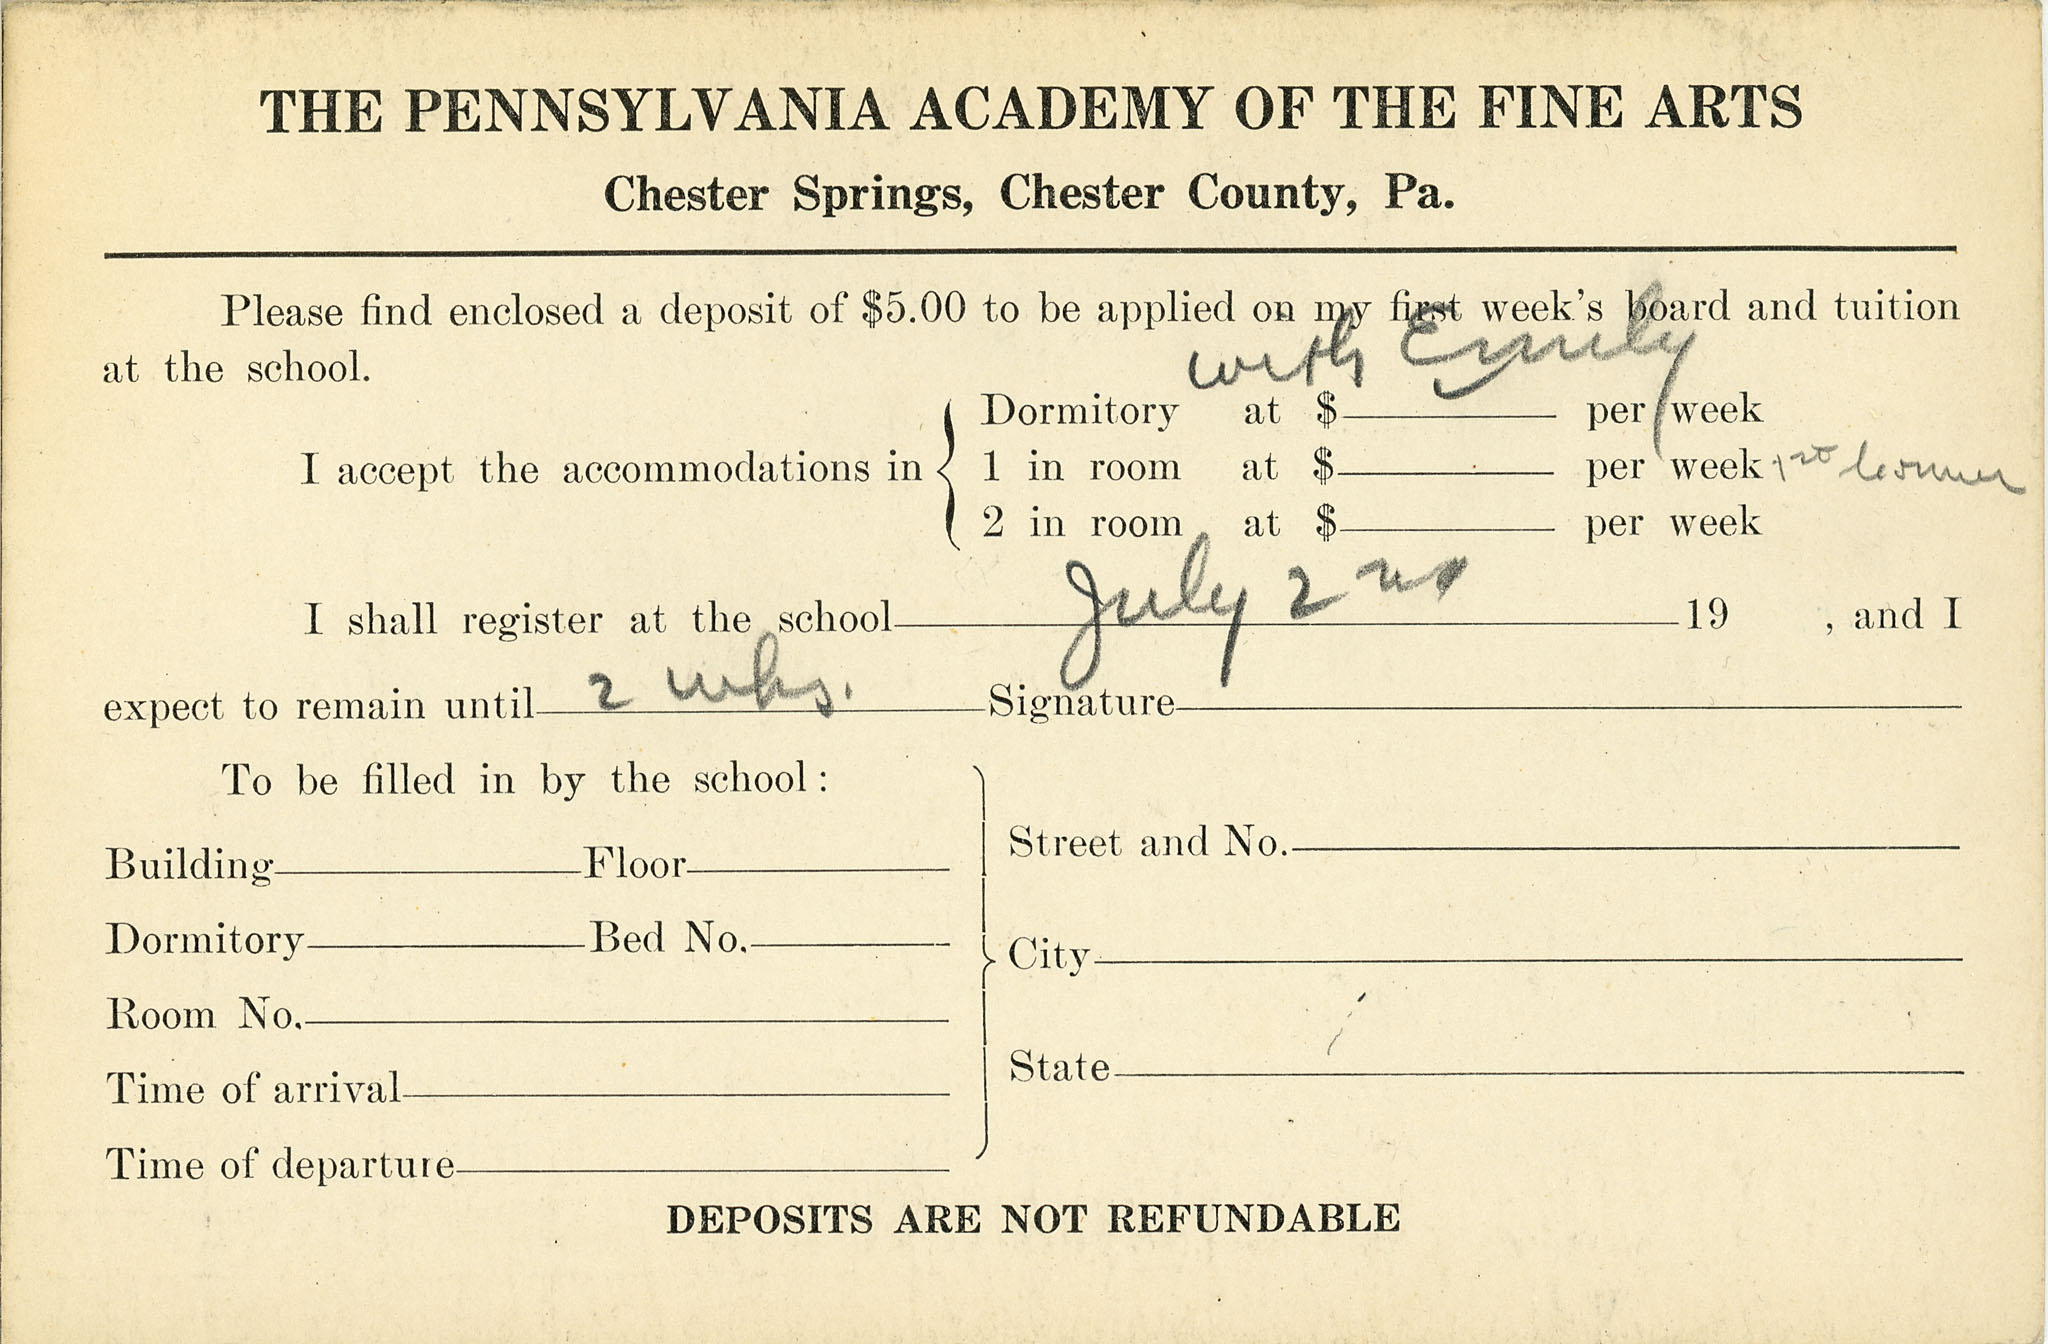 THE PENNSYLVANIA ACADEMY OF THE FINE ARTS
Chester Springs, Chester County, Pa.
Please find enclosed a deposit of $5.00 to be applied on my first week's board and tuition
at the school.
with Emily
Dormitory at $ per week
I accept the accommodations in
1 in room at $ per week 1st
2 in room at $ per week
I shall register at the school July 2nd 19 , and I
expect to remain until 2 wks. Signature
To be filled in by the school:
Building Floor
Street and No.
Dormitory Bed No.
City
Room No.
State
Time of arrival
Time of departure
DEPOSITS ARE NOT REFUNDABLE